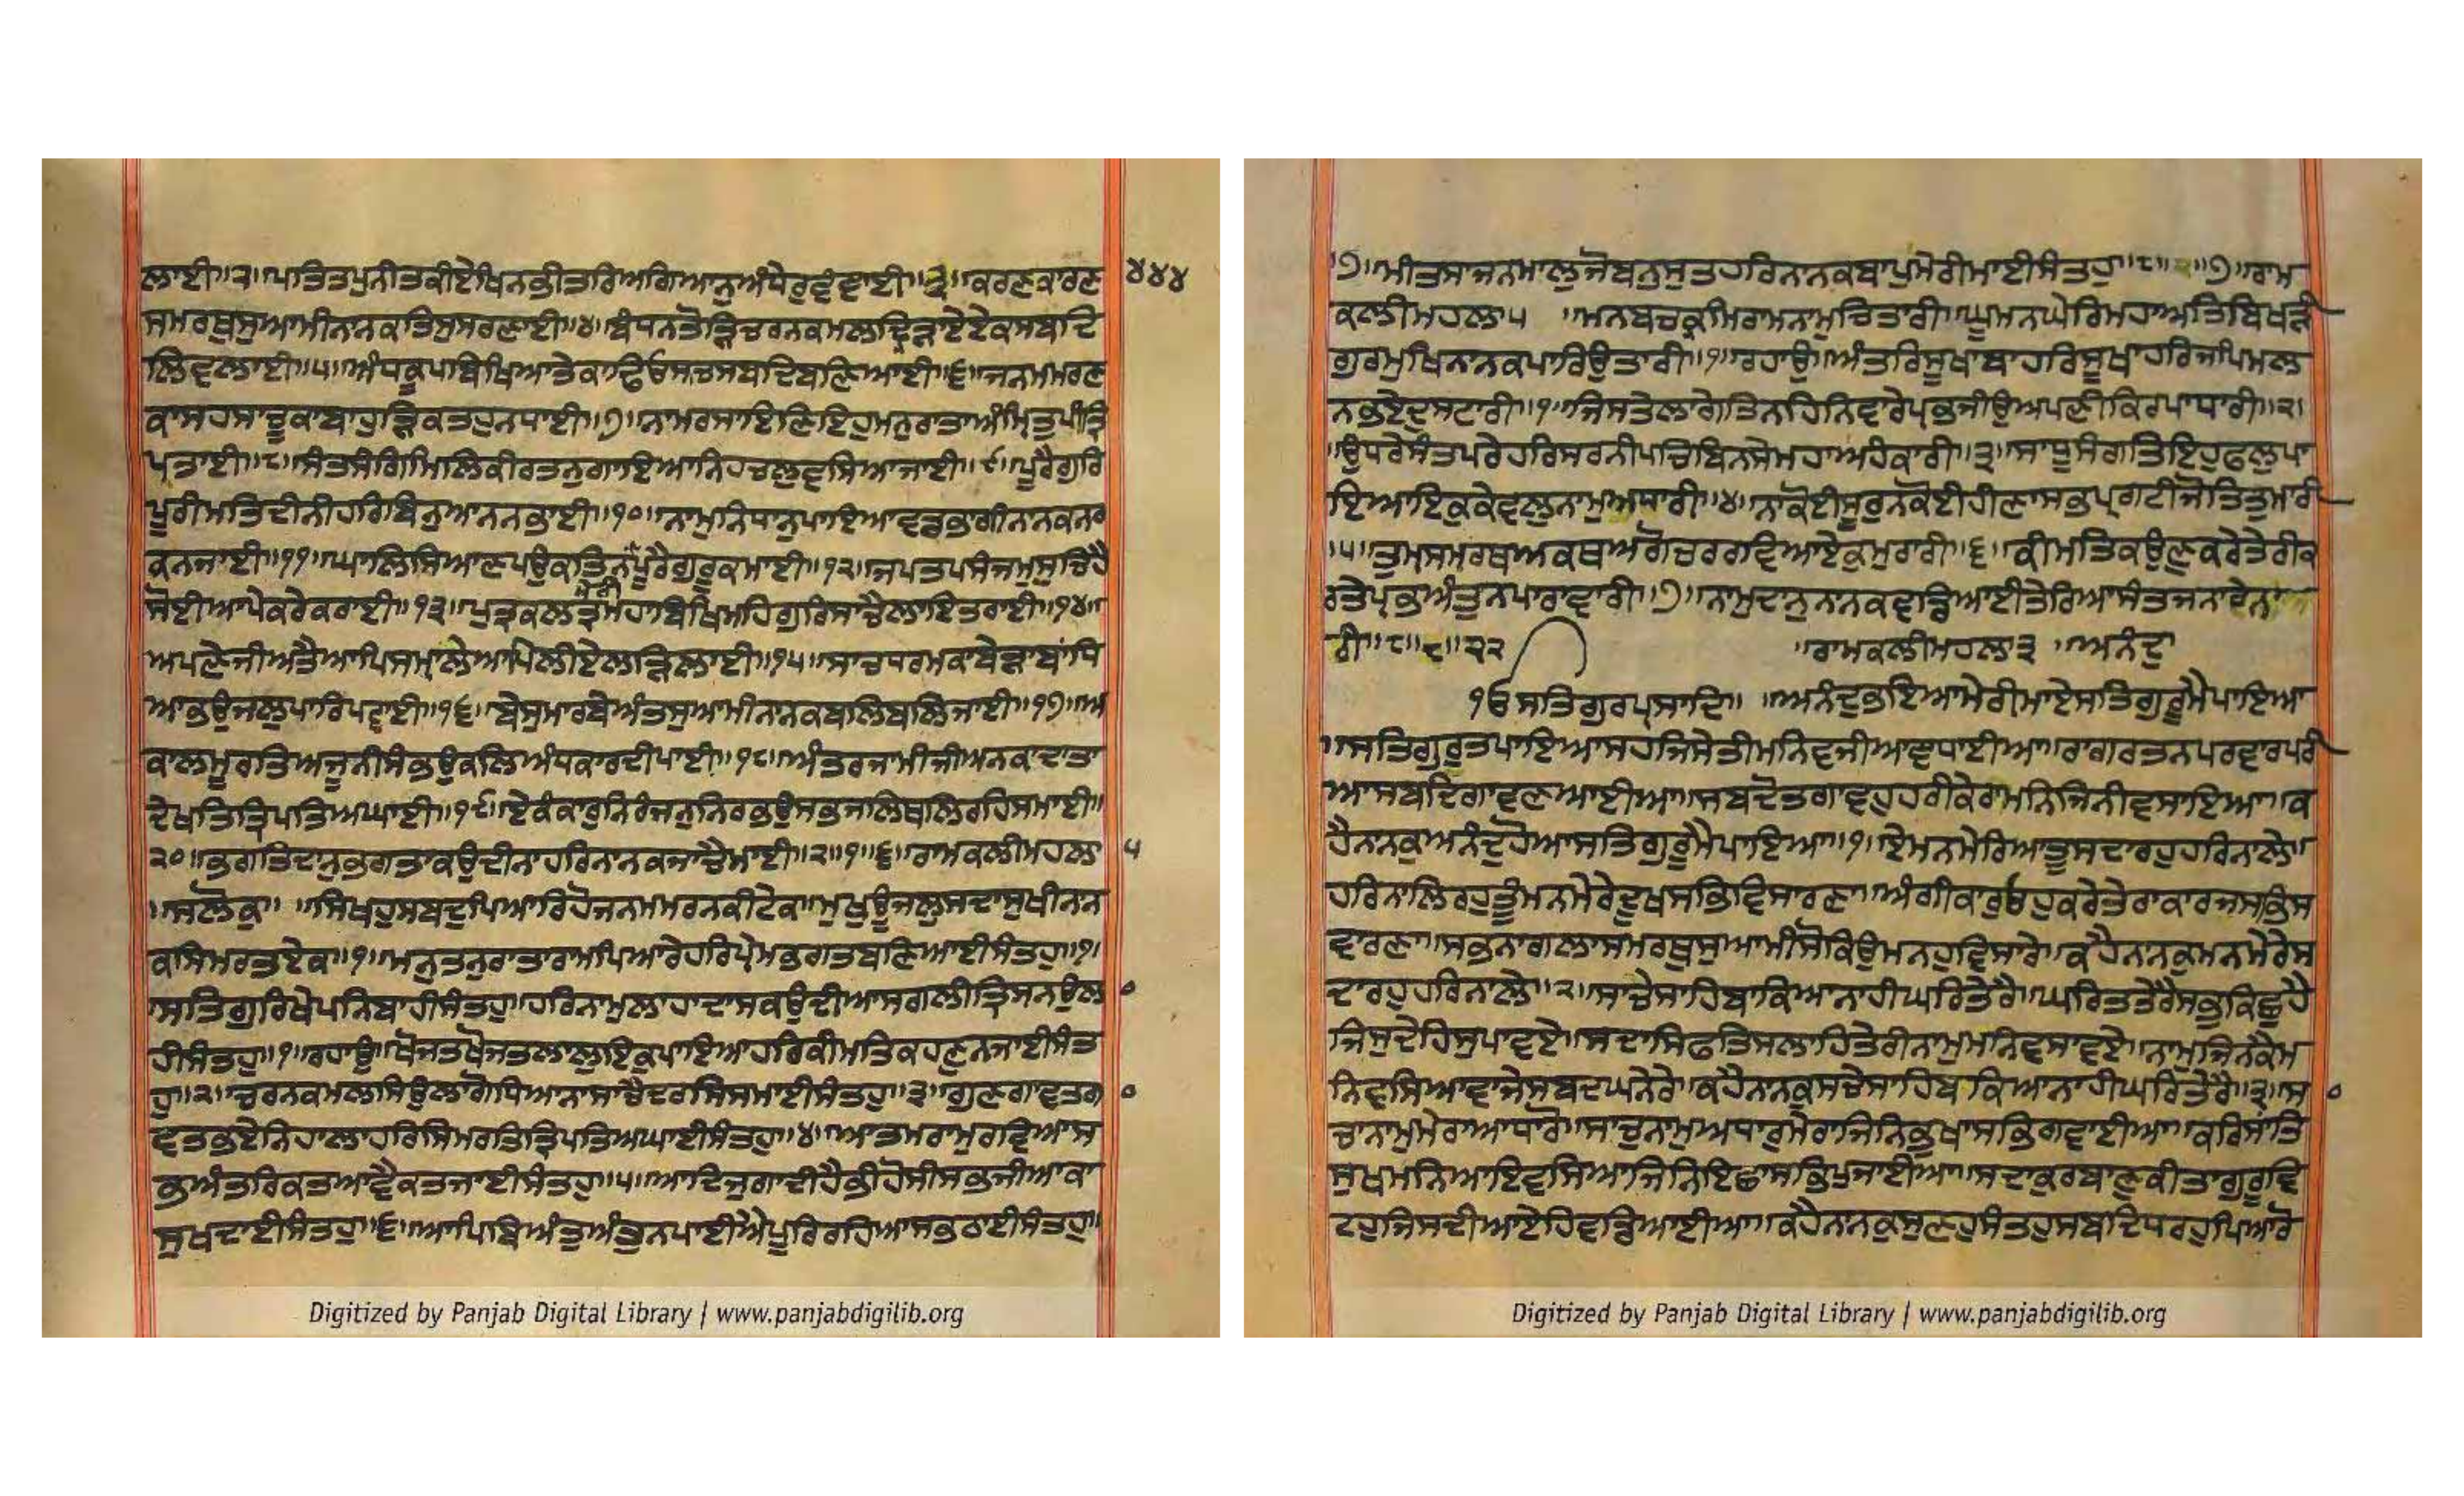 ਲਾਈ॥੨॥ਪਤਿਤਪੁਨੀਤਕੀਏਖਿਨਭੀਤਰਿਅਗਿਆਨੁਅੰਧੇਰੁਵੰਞਾਈ॥੩॥ਕਰਣਕਾਰਣ ੪੪੪
ਸਮਰਥੁਸੁਆਮੀਨਾਨਕਤਿਸੁਸਰਣਾਈ॥੪॥ਬੰਧਨਤੋੜਿਚਰਨਕਮਲਦ੍ਰਿੜਾਏਏਕਸਬਦਿ
ਲਿਵਲਾਈ॥੫॥ਅੰਧਕੂਪਬਿਖਿਆਤੇਕਾਢਿਓਸਚਸਬਦਿਬਣਿਆਈ॥੬॥ਜਨਮਮਰਣ
ਕਾਸਹਸਾਚੂਕਾਬਾਹੁੜਿਕਤਹੁਨਧਾਈ॥੭॥ਨਾਮਰਸਾਇਣਿਇਹੁਮਨੁਰਾਤਾਅੰਮ੍ਰਿਤੁਪੀਤ੍ਰਿ
ਪਤਾਈ॥੮॥ਸੰਤਸੰਗਿਮਿਲਿਕੀਰਤਨੁਗਾਇਆਨਿਹਚਲੁਵਸਿਆਜਾਈ॥੯॥ਪੂਰੈਗੁਰਿ
ਪੂਰੀਮਤਿਦੀਨੀਹਰਿਬਿਨੁਆਨਨਭਾਈ॥੧੦॥ਨਾਮੁਨਿਧਾਨੁਪਾਇਆਵਡਭਾਗੀਨਾਨਕਨਰ
ਕਨਜਾਈ॥੧੧॥ਘਾਲਿਸਿਆਣਪਉਕਤਿਨਪੂਰੈਗੁਰੂਕਮਾਈ॥੧੨॥ਜਪਤਪਸੰਜਮਸੁਚਿਹੈ
ਸੋਈਆਪੇਕਰੇਕਰਾਈ॥੧੩॥ਪੁਤ੍ਰਕਲਤ੍ਰਮਹਾਬਿਖਿਆਮਹਿਗੁਰਿਸਾਚੈਲਾਇਤਰਾਈ॥੧੪॥
ਅਪਣੇਜੀਅਤੈਆਪਿਸਮ੍ਹਾਲੇਆਪਿਲੀਏਲੜਿਲਾਈ॥੧੫॥ਸਾਚਧਰਮਕਾਬੇੜਾਬਾਂਧਿ
ਆਭਉਜਲੁਪਾਰਿਪਵਾਈ॥੧੬॥ਬੇਸੁਮਾਰਬੇਅੰਤਸੁਆਮੀਨਾਨਕਬਲਿਬਲਿਜਾਈ॥੧੭॥ਅ
ਕਾਲਮੂਰਤਿਅਜੂਨੀਸੰਭਉਕਲਿਅੰਧਕਾਰਦੀਪਾਈ॥੧੮॥ਅੰਤਰਜਾਮੀਜੀਅਨਕਾਦਾਤਾ
ਦੇਖਤਤ੍ਰਿਪਤਿਅਘਾਈ॥੧੯॥ਏਕੰਕਾਰੁਨਿਰੰਜਨੁਨਿਰਭਉਸਭਜਲਿਥਲਿਰਹਿਸਮਾਈ॥
੨੦॥ਭਗਤਿਦਾਨੁਭਗਤਾਕਉਦੀਨਾਹਰਿਨਾਨਕਜਾਚੈਮਾਈ॥੨॥੧॥੬॥ਰਾਮਕਲੀਮਹਲਾ ੫
॥ਸਲੋਕੁ॥ ॥ਸਿਖਹੁਸਬਦੁਪਿਆਰਿਹੋਜਨਮਮਰਨਕੀਟੇਕ॥ਮੁਖੁਊਜਲੁਸਦਾਸੁਖੀਨਾਨ
ਕਸਿਮਰਤਏਕ॥੧॥ਮਨੁਤਨੁਰਾਤਾਰਾਮਪਿਆਰੇਹਰਿਪ੍ਰੇਮਭਗਤਬਣਿਆਈਸੰਤਹੁ॥੧॥
ਸਤਿਗੁਰਿਖੇਪਨਿਬਾਹੀਸੰਤਹੁ॥ਹਰਿਨਾਮੁਲਾਹਾਦਾਸਕਉਦੀਆਸਗਲੀਤ੍ਰਿਸਨਉਲਾ
ਹੀਸੰਤਹੁ॥੧॥ਰਹਾਉ॥ਖੋਜਤਖੋਜਤਲਾਲੁਇਕੁਪਾਇਆਹਰਿਕੀਮਤਿਕਹਣੁਨਜਾਈਸੰਤ
ਹੁ॥੨॥ਚਰਨਕਮਲਸਿਉਲਾਗੋਧਿਆਨਾਸਾਚੈਦਰਸਿਸਮਾਈਸੰਤਹੁ॥੩॥ਗੁਣਗਾਵਤਗਾ
ਵਤਭਏਨਿਹਾਲਾਹਰਿਸਿਮਰਤਤ੍ਰਿਪਤਿਅਘਾਈਸੰਤਹੁ॥੪॥ਆਤਮਰਾਮੁਰਵਿਆਸ
ਭਅੰਤਰਿਕਤਆਵੈਕਤਜਾਈਸੰਤਹੁ॥੫॥ਆਦਿਜੁਗਾਦੀਹੈਭੀਹੋਸੀਸਭਜੀਆਕਾ
ਸੁਖਦਾਈਸੰਤਹੁ॥੬॥ਆਪਿਬੇਅੰਤੁਅੰਤੁਨਪਾਈਐਪੂਰਿਰਹਿਆਸਭਠਾਈਸੰਤਹੁ॥
੭॥ਮੀਤਸਾਜਨਮਾਲੁਜੋਬਨੁਸੁਤਹਰਿਨਾਨਕਬਾਪੁਮੇਰੀਮਾਈਸੰਤਹੁ॥੮॥੨॥੭॥ਰਾਮ
ਕਲੀਮਹਲਾ੫ ॥ਮਨਬਚਕ੍ਰਮਿਰਾਮਨਾਮੁਚਿਤਾਰੀ॥ਘੂਮਨਘੇਰਿਮਹਾਅਤਿਬਿਖੜੀ
ਗੁਰਮੁਖਿਨਾਨਕਪਾਰਿਉਤਾਰੀ॥੧॥ਰਹਾਉ॥ਅੰਤਰਿਸੂਖਾਬਾਹਰਿਸੂਖਾਹਰਿਜਪਿਮਲ
ਨਭਏਦੁਸਟਾਰੀ॥੧॥ਜਿਸਤੇਲਾਗੇਤਿਨਹਿਨਿਵਾਰੇਪ੍ਰਭਜੀਉਅਪਣੀਕਿਰਪਾਧਾਰੀ॥੨॥
ਉਧਰੇਸੰਤਪਰੇਹਰਿਸਰਨੀਪਚਿਬਿਨਸੇਮਹਾਅਹੰਕਾਰੀ॥੩॥ਸਾਧੂਸੰਗਤਿਇਹੁਫਲੁਪਾ
ਇਆਇਕੁਕੇਵਲਨਾਮੁਅਧਾਰੀ॥੪॥ਨਾਕੋਈਸੂਰੁਨਕੋਈਹੀਣਾਸਭਪ੍ਰਗਟੀਜੋਤਿਤੁਮਾਰੀ
॥੫॥ਤੁਮਸਮਰਥਅਕਥਅਗੋਚਰਰਵਿਆਏਕੁਮੁਰਾਰੀ॥੬॥ਕੀਮਤਿਕਉਣੁਕਰੇਤੇਰੀਕ
ਰਤੇਪ੍ਰਭਅੰਤੁਨਪਾਰਾਵਾਰੀ॥੭॥ਨਾਮੁਦਾਨੁਨਾਨਕਵਡਿਆਈਤੇਰਿਆਸੰਤਜਨਾਰੇਨਾ
ਰੀ॥੮॥੮॥੨੨ ॥ਰਾਮਕਲੀਮਹਲਾ੩ ॥ਅਨੰਦੁ
ੴਸਤਿਗੁਰਪ੍ਰਸਾਦਿ॥ ॥ਅਨੰਦੁਭਇਆਮੇਰੀਮਾਏਸਤਿਗੁਰੂਮੈਪਾਇਆ
॥ਸਤਿਗੁਰੁਤਪਾਇਆਸਹਜਿਸੇਤੀਮਨਿਵਜੀਆਵਾਧਾਈਆ॥ਰਾਗਰਤਨਪਰਵਾਰਪਰੀ
ਆਸਬਦਿਗਾਵਣਆਈਆ॥ਸਬਦੋਤਗਾਵਹੁਹਰੀਕੇਰਾਮਨਿਜਿਨੀਵਸਾਇਆ॥ਕ
ਹੈਨਾਨਕੁਅਨੰਦੁਹੋਆਸਤਿਗੁਰੂਮੈਪਾਇਆ॥੧॥ਏਮਨਮੇਰਿਆਤੂਸਦਾਰਹੁਹਰਿਨਾਲੇ॥
ਹਰਿਨਾਲਿਰਹੁਤੂੰਮਨਮੇਰੇਦੂਖਸਭਿਵਿਸਾਰਣਾ॥ਅੰਗੀਕਾਰੁਓਹੁਕਰੇਤੇਰਾਕਾਰਜਸਭਿਸ
ਵਾਰਣਾ॥ਸਭਨਾਗਲਾਸਮਰਥੁਸੁਆਮੀਸੋਕਿਉਮਨਹੁਵਿਸਾਰੇ॥ਕਹੈਨਾਨਕੁਮਨਮੇਰੇਸ
ਦਾਰਹੁਹਰਿਨਾਲੇ॥੨॥ਸਾਚੇਸਾਹਿਬਾਕਿਆਨਾਹੀਘਰਿਤੇਰੈ॥ਘਰਿਤਤੇਰੈਸਭੁਕਿਛੁਹੈ
ਜਿਸੁਦੇਹਿਸੁਪਾਵਏ॥ਸਦਾਸਿਫਤਿਸਲਾਹਤੇਰੀਨਾਮੁਮਨਿਵਸਾਵਏ॥ਨਾਮੁਜਿਨਕੈਮ
ਨਿਵਸਿਆਵਾਜੇਸਬਦਘਨੇਰੇ॥ਕਹੈਨਾਨਕੁਸਚੇਸਾਹਿਬਕਿਆਨਾਹੀਘਰਿਤੇਰੈ॥੩॥ਸਾ
ਚਾਨਾਮੁਮੇਰਾਆਧਾਰੋ॥ਸਾਚੁਨਾਮੁਅਧਾਰੁਮੇਰਾਜਿਨਿਭੁਖਾਸਭਿਗਵਾਈਆ॥ਕਰਿਸਾਂਤਿ
ਸੁਖਮਨਿਆਇਵਸਿਆਜਿਨਿਇਛਾਸਭਿਪੁਜਾਈਆ॥ਸਦਾਕੁਰਬਾਣੁਕੀਤਾਗੁਰੂਵਿ
ਟਹੁਜਿਸਦੀਆਏਹਿਵਡਿਆਈਆ॥ਕਹੈਨਾਨਕੁਸੁਣਹੁਸੰਤਹੁਸਬਦਿਧਰਹੁਪਿਆਰੋ
Digitized by Panjab Digital Library | www.panjabdigilib.org
Digitized by Panjab Digital Library | www.panjabdigilib.org